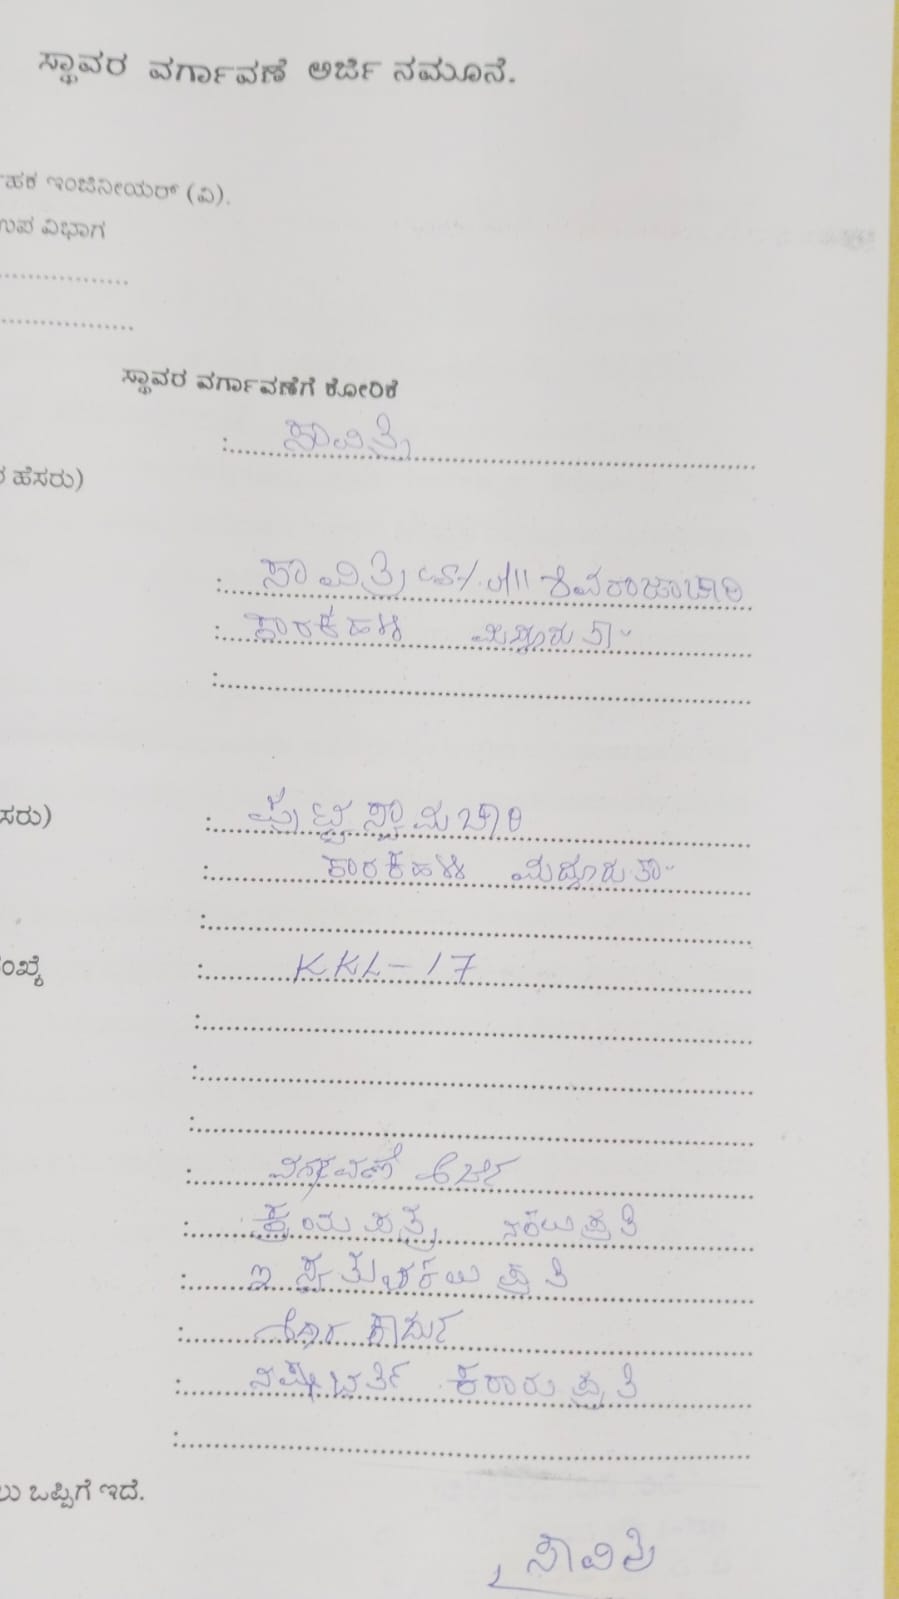 ಸ್ಥಾವರ ವರ್ಗಾವಣೆ ಅರ್ಜಿ ನಮೂನೆ.
ಹಕ ಇಂಜಿನೀಯರ್ (ವಿ).
ಉಪ ವಿಭಾಗ
ಸ್ಥಾವರ ವರ್ಗಾವಣೆಗೆ ಕೋರಿಕೆ
: ಸಾವಿತ್ರಿ
ಹೆಸರು)
: ಸಾವಿತ್ರಿ ಶಿವರಾಜಾಚಾರಿ
: ಕಾರಕಹಳ್ಳಿ ಮದ್ದೂರು ತಾ
:
ಸರು) : ಪುಟ್ಟಸ್ವಾಮಚಾರಿ
: ಕಾರಕಹಳ್ಳಿ ಮದ್ದೂರು ತಾ
:
ಸಂಖ್ಯೆ : KKL-17
:
:
:
: ವರ್ಗಾವಣೆ ಅರ್ಜಿ
: ಕ್ರಯ ಪತ್ರ ನಕಲು ಪ್ರತಿ
: ಇ ಸ್ವತ್ತು ನಕಲು ಪ್ರತಿ
: ಆಧಾರ ಕಾರ್ಡು
: ಕರಾರು ಪ್ರತಿ
:
ಲು ಒಪ್ಪಿಗೆ ಇದೆ.
ಸಾವಿತ್ರಿ